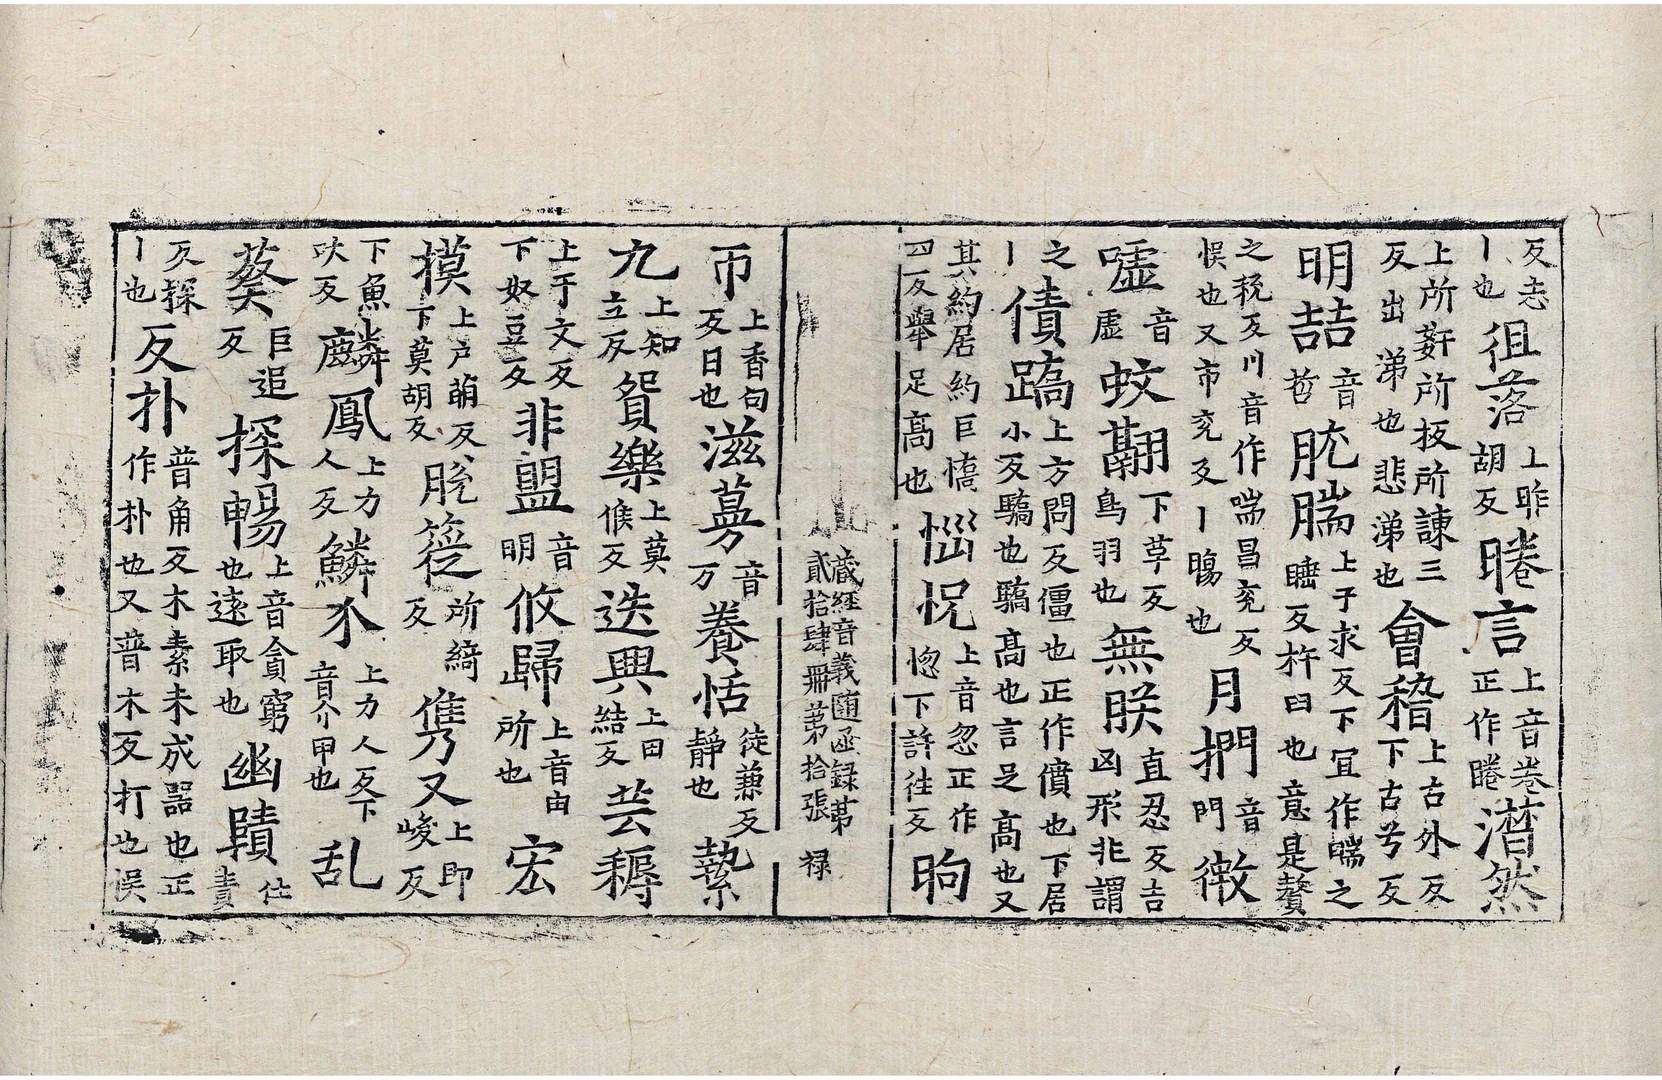 反去丨也徂落上昨胡反睠言上音卷正作睠潸然
上所姧所板所諌三反出涕也悲涕也會稽上古外反下古兮反
明喆音哲肮腨上于求反下冝作腨之睡反杵臼也意是贅
之稅反川音作喘昌兖反悮也又市兖反丨腸也月捫音門徴
嘘音虛蚊翻下草反鳥羽也無朕直忍反吉凶形非謂
之債蹻上方問反僵也正作僨也下居丨小反驕也驕髙也言足髙也又
其約居約巨憍四反舉足髙也惱怳上音忽正作惚下許往反昫
藏經音義随函録苐貳拾肆冊苐拾張 禄
帀上香句反日也滋蔓音万養恬徒兼反靜也縶
九上知立反貿樂上莫候反迭興上田結反芸耨
上于文反下奴豆反非盟音明攸歸上音由所也宏
摸上户萌反下莫胡反脫簁所綺反雋又上即峻反
下魚吠反麟鳳上力人反鱗介上力人反下音介甲也乱
葵巨追反探暢上音貪窮也遠取也幽賾仕責
反探丨也反扑普角反木素未成噐也正作朴也又普木反打也悮